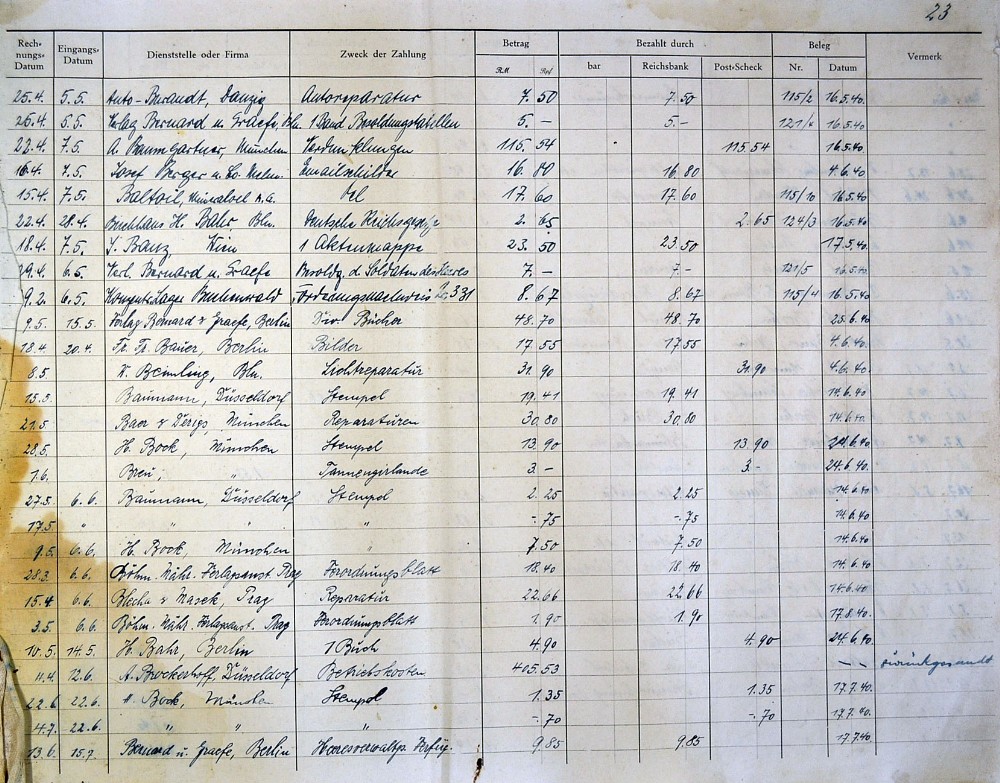 23
Rech-nungs-Datum Eingangs-Datum Dienststelle oder Firma Zweck der Zahlung Betrag RM Rpf Bezahlt durch bar Reichsbank Post-Scheck Beleg Nr. Datum Vermerk
25.4. 5.5. Auto-Burandt, Danzig Autoreparatur 7.50 7.50 115/2 16.5.40.
26.4. 5.5. Verlag Bernard u. Graefe, Bln. 1 Band Besoldungstabellen 5.– 5.– 121/ 16.5.40
22.4. 7.5. A. Baumgartner, München Verdunklungen 115.54 115.54 16.5.40
16.4. 7.5. Josef Berger u. Co. Emailschilder 16.80 16.80 4.6.40
15.4. 7.5. Baltoil, Mineraloel A.G. Oel 17.60 17.60 115/10 16.5.40
22.4. 28.4. Buchhaus H. Bahr Bln. Deutsche 2.65 2.65 124/3 16.5.40
18.4. 7.5. J. Banz, Wien 1 Aktenmappe 23.50 23.50 17.5.40
29.4. 6.5. Verl. Bernard u. Graefe Besoldg. d. Soldaten des Heeres 7.– 7.– 121/5 16.5.40
9.2. 6.5. Konzentr. Lager Buchenwald Forderungsnachweis Nr. 331 8.67 8.67 115/4 16.5.40
9.5. 15.5. Verlag Bernard & Graefe, Berlin Div. Bücher 48.70 48.70 25.6.40
18.4. 20.4. Fr. Fr. Bauer, Berlin Bilder 17.55 17.55 4.6.40.
8.5. Bln. Lichtreparatur 31.90 31.90 4.6.40.
15.5. Baumann, Düsseldorf Stempel 19.41 19.41 14.6.40
21.5 Baer & Derigs, München Reparaturen 30.80 30.80 14.6.40
28.5. H. Bock, München Stempel 13.90 13.90 24.6.40
1.6. " Tannengirlande 3.– 3.– 24.6.40.
27.5. 6.6. Baumann, Düsseldorf Stempel 2.25 2.25 14.6.40
17.5. " " " " –.75 –.75 14.6.40
9.5. 6.6. H. Bock, München " 7.50 7.50 14.6.40
28.3. 6.6. Böhm. Mähr. Verlagsanst. Prag Verordnungsblatt 18.40 18.40 14.6.40
15.4 6.6. Blecha & Masek, Prag Reparatur 22.66 22.66 14.6.40
3.5. 6.6. Böhm. Mähr. Verlagsanst. Prag Verordnungsblatt 1.90 1.90 17.8.40.
10.5. 14.5. H. Bahr, Berlin 1 Buch 4.90 4.90 24.6.40
11.4. 12.6. A. Brockerhoff, Düsseldorf Betriebskosten 405.53 – – zurückgesandt
22.6 22.6. H. Bock, München Stempel 1.35 1.35 17.7.40.
4.7. 22.6. " " " –.70 –.70 17.7.40.
13.6 15.7. Bernard u. Graefe, Berlin 9.85 9.85 17.7.40